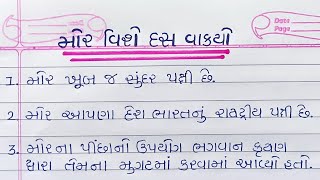 Date
Page
મોર વિશે દસ વાક્યો
1. મોર ખૂબ જ સુંદર પક્ષી છે.
2 મોર આપણા દેશ ભારતનું રાષ્ટ્રીય પક્ષી છે.
3. મોરના પીંછાનો ઉપયોગ ભગવાન કૃષ્ણ
દ્વારા તેમના મુગટમાં કરવામાં આવ્યો હતો.